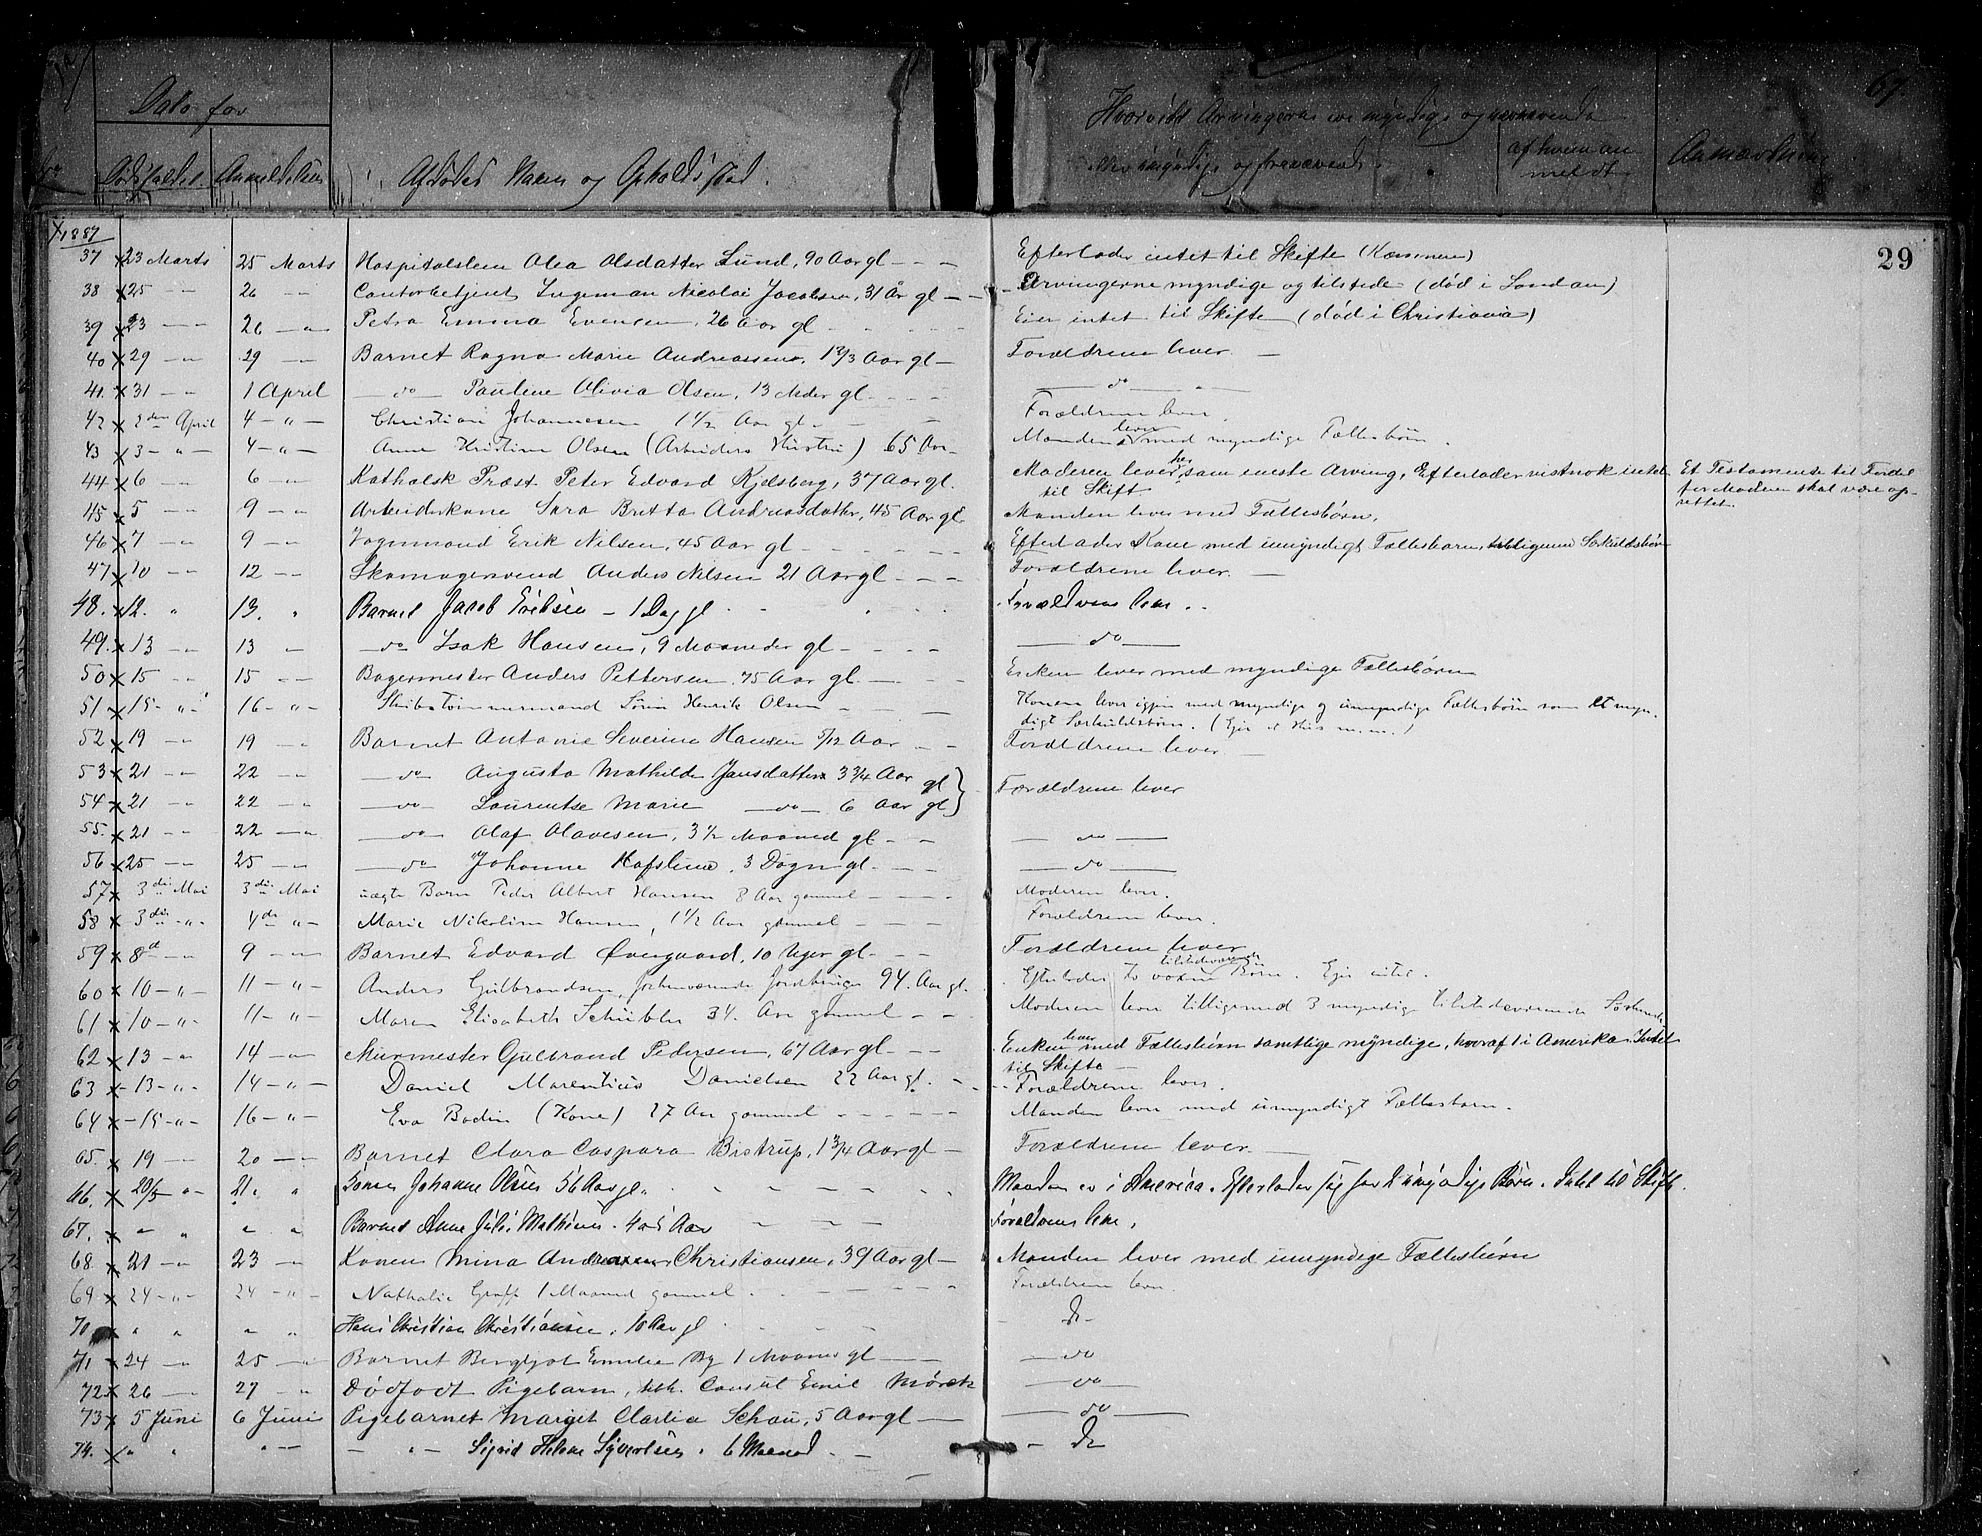 Dato for
Dødsfaldet. Anmeldelsen
Afdødes Navn og Opholdssted.
Hvorvidt Arvingerne ere myndige og nærværende
eller umyndige og fraværende.
af hvem anmeldt
Anmærkning
69.
29
1887
37 23 Marts 25 Marts Hospitalslem Olea Olsdatter Lund, 90 Aar gl Efterlader intet til Skifte
38 25 — 26 — Contorbetjent Ingeman Nicolai Jacobsen, 31 År gl — Arvingerne myndige og tilstede (død i London)
39 23 — 26 — Petra Emma Evensen, 26 Aar gl Eier intet til Skifte (død i Christiania)
40 29 — 29 — Barnet Ragna Marie Andreassen, 1 2/3 Aar gl — Forældrene lever —
41. 31 — 1 April — do — Pauline Olivia Olsen, 13 Mdr gl — do —
42 2den April 4 — " — Christian Johannesen 1 1/2 Aar gl. — Forældrene lever.
43 3 — " — 4 — " — Anne Kristine Olsen (Arbeiders Hustru) 65 Aar — Manden lever med myndige Fællesbørn.
44 6 — 6 — Katholsk Præst Peter Edvard Kjelsberg, 37 Aar gl. Moderen lever her som eneste Arving, Efterlader vistnok intet Et Testamente til Fordel
til Skift for Moderen skal være op-
rettet.
45 5 — 9 — Arbeiderkone Sara Britta Andreasdatter, 45 Aar gl. Manden lever med Fællesbørn.
46 7 — 9 — Vognmand Erik Nilsen, 45 Aar gl — Efterlader Kone med umyndigt Fællesbarn, tilligemed Særkuldsbørn
47 10 — 12 — Skomagersvend Anders Nilsen 21 Aar gl — Forældrene lever. —
48. 12. " 13. " Barnet Jacob Eriksen — 1 Dag gl Forældrene lever.
49. 13 — 13 — do — Isak Hansen, 9 Maaneder gl — do —
50 15 — 15 — Bagermester Anders Pettersen, 75 Aar gl. — Enken lever med myndige Fællesbørn
51 15 — " — 16 — " — Skibstømmermand Sören Henrik Olsen — Konen lever igjen med myndige og umyndige Fællesbørn samt et myn-
digt Særkuldsbørn. (Ejer et Hus m. m.)
52 19 — 19 — Barnet Antonie Severine Hansen 5/12 Aar — Forældrene lever —
53 21 — 22 — do — Augusta Mathilde Jansdatter 3 3/4 Aar gl Forældrene lever
54 21 — 22 — do — Laurentse Marie — do — 6 Aar gl
55. 21 — 22 — do — Olaf Olavesen, 3 1/2 Maaned gl — do —
56 25 — 25 — do — Johanne Hafslund, 3 Døgn gl. — do —
57 3die Mai 3die Mai uægte Barn Peder Albert Hansen 8 Aar gammel — Moderen lever.
58 3die — " — 4de — " — Marie Nikoline Hansen, 1 1/2 Aar gammel — Forældrene lever.
59 8de — 9 — Barnet Edvard Øvergaard, 10 Uger gl. — Forældrene lever
60 10 — " — 11 — " — Anders Gulbrandsen, forhenværende Jordbruger 94 Aar gl. Efterlader to voxne tilstedeværende Børn. Ejer intet.
61 10 — " — 11 — " — Maren Elisabeth Schübler 34. Aar gammel — Moderen lever tilligemed 3 myndige tilstedeværende Søskende
62 13 — 14 — Murmester Gulbrand Pedersen, 67 Aar gl. — Enken lever med Fællesbørn samtlige myndige, hvoraf 1 i Amerika. Intet
til Skifte —
63 13 — " — 14 — " — Daniel Marentius Danielsen 22 Aar gl. — Forældrene lever.
64 15 — " — 16 — " — Eva Bodin (Kone) 27 Aar gammel — Manden lever med umyndigt Fællesbarn.
65. 19 — 20 — Barnet Clara Caspara Bistrup, 1 3/4 Aar gl — Forældrene lever —
66. 20/5 — " 21. " Konen Johanne Olsen 56 Aar gl. Manden er i America. Efterlader sig umyndige Børn. Intet til Skifte.
67. " " " " Barnet Anne Julie Mathisen. 4 Aar Forældrene lever.
68 21 — 23 — Konen Mina Andreasen Christiansen, 39 Aar gl — Manden lever med umyndige Fællesbørn
69 24 — " — 24 — " — Nathalie Graff 1 Maaned gammel. Forældrene lever.
70 " " " " Hans Christian Christiansen. 10 Aar gl — do —
71 24 — 25 — Barnet Bergljot Emilie By 1 Maaned gl — do
72 26 — 27 — Dødfødt Pigebarn, Consul Emil Mørch — do —
73 5 Juni 6 Juni Pigebarnet Margit Clarlia Schau, 5 Aar gl — do —
74. " " " — — " — Sigrid Helene Syvertsen. 6 Maaned — do